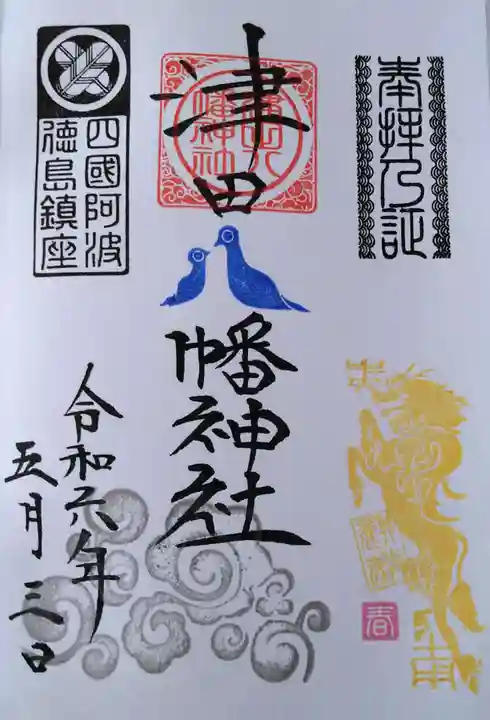 奉拝乃証
津田
幡神社
四國阿波
徳島鎮座
令和六年
五月三日
春